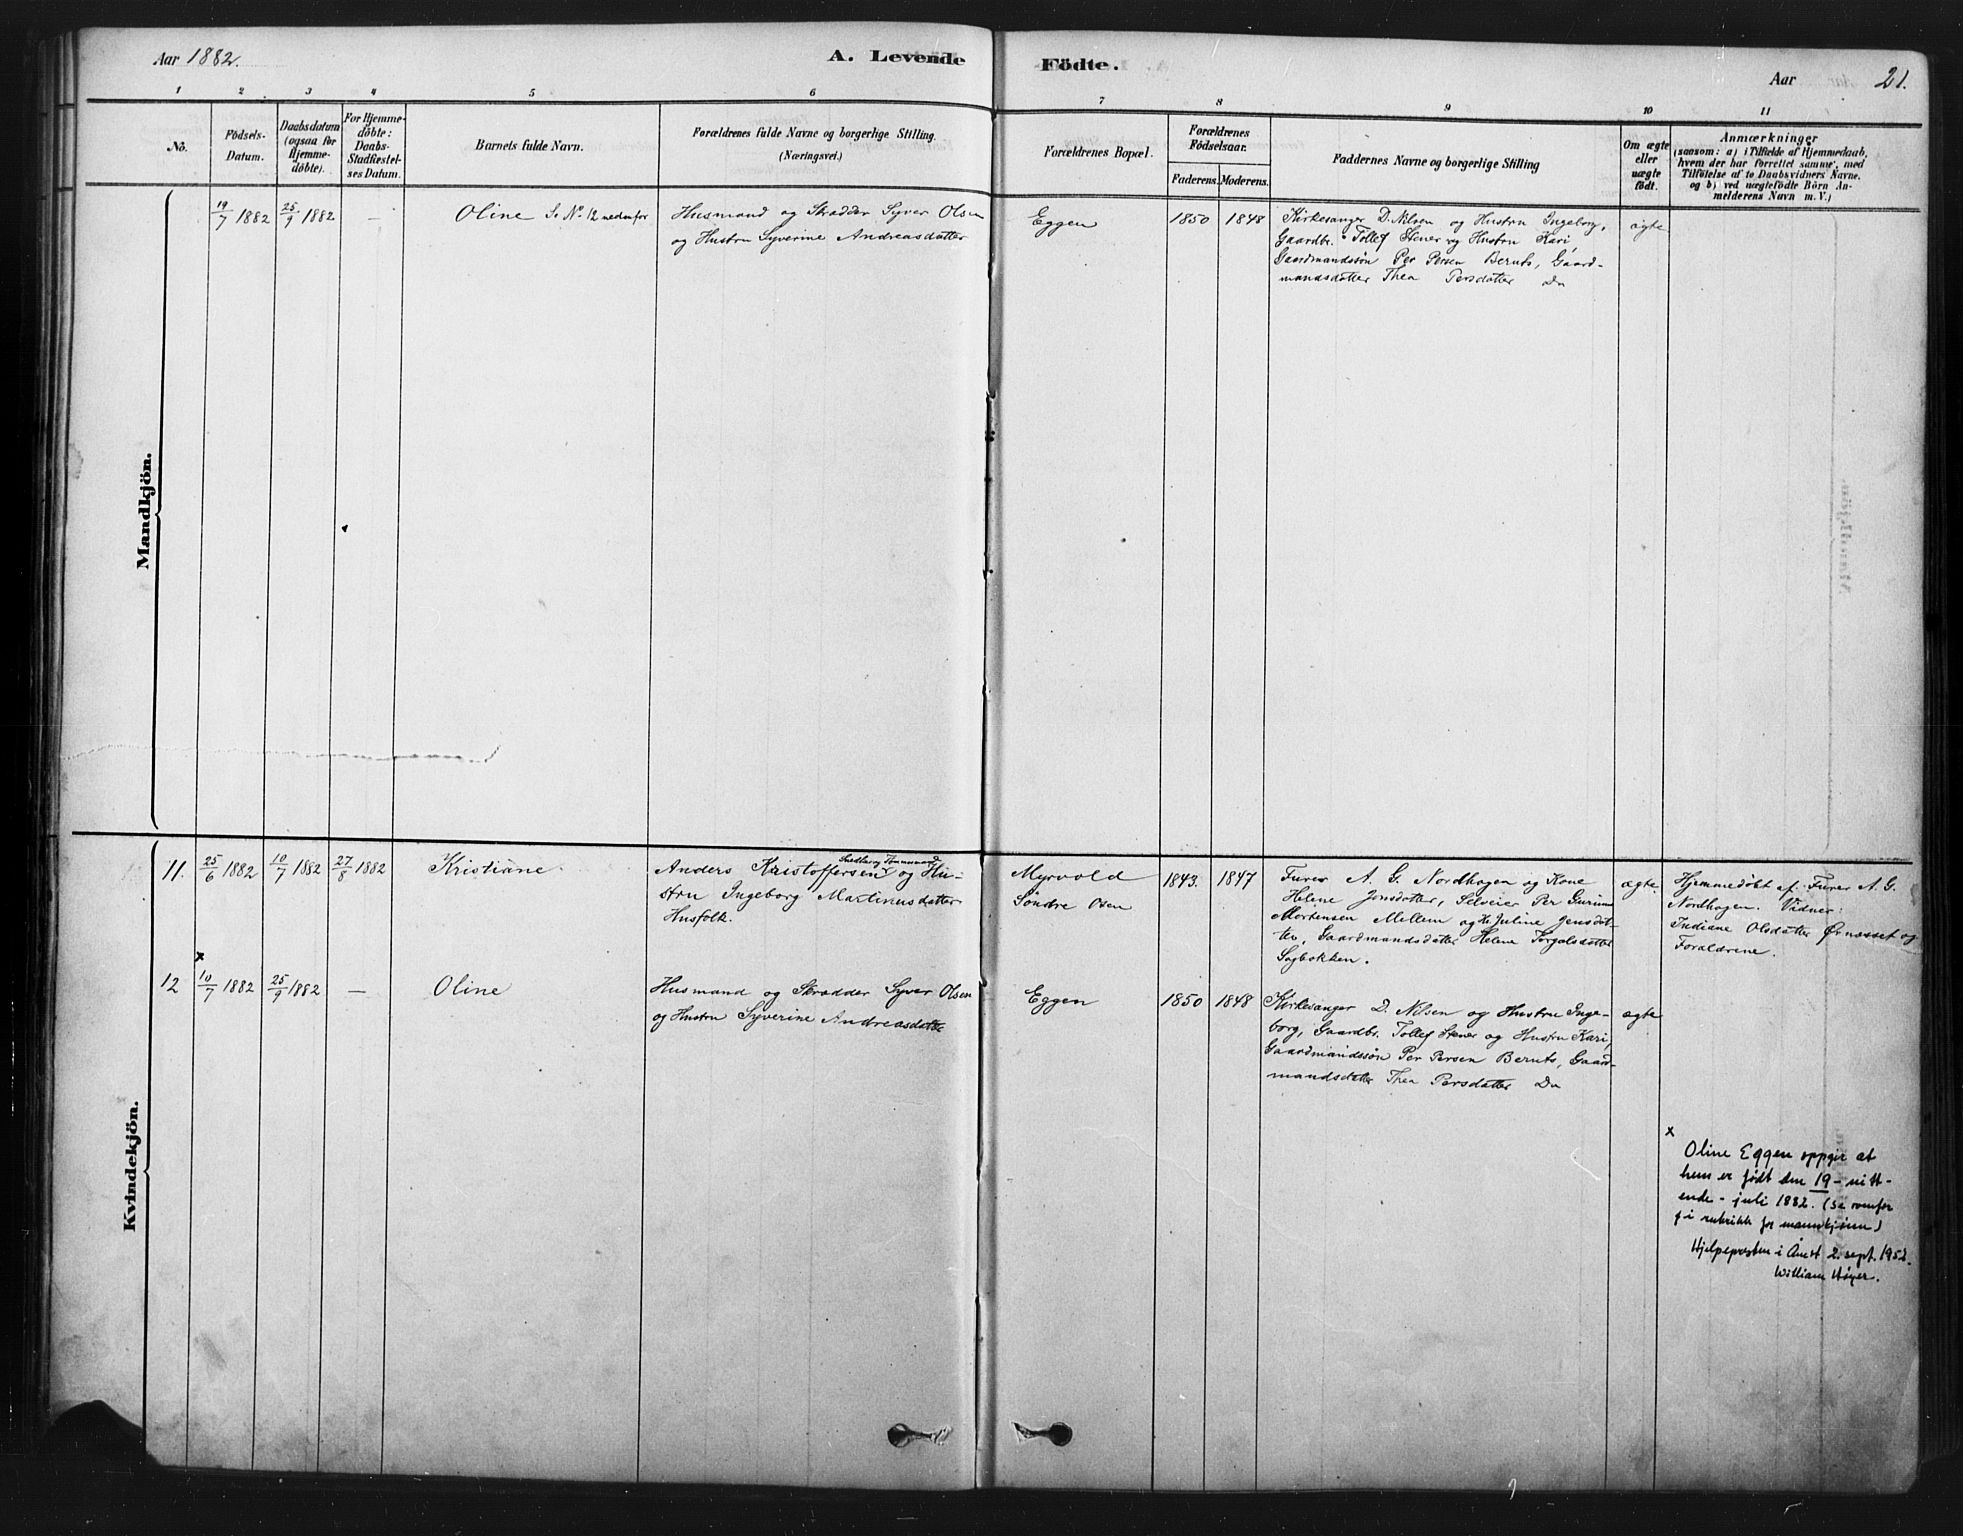 Aar 1882.
A. Levende
Födte.
Aar
21.
1
2
3
4
5
6
7
8
9
10
11
No.
Födsels-
Datum.
Daabsdatum
(ogsaa for
Hjemme-
döbte).
For Hjemme-
döbte:
Daabs-
Stadfæstel-
ses Datum.
Barnets fulde Navn.
Forældrenes fulde Navne og borgerlige Stilling.
(Næringsvei.)
Forældrenes Bopæl.
Forældrenes
Födselsaar.
Faderens. Moderens.
Faddernes Navne og borgerlige Stilling
Om ægte
eller
uægte
födt.
Anmærkninger
(saasom: a) i Tilfælde af Hjemmedaab,
hvem der har forrettet samme, med
Tilföielse af to Daabsvidners Navne.
og b) ved uægtefödte Börn An-
melderens Navn m. V.)
Mandkjön.
19/7 1882
25/9 1882
—
Oline Se No. 12 nedenfor
Husmand og Skrædder Syver Olsen
og Hustru Syverine Andreasdatter
Eggen
1850
1848
Kirkesanger D. Nilsen og Hustru Ingeborg,
Gaardbr. Tollef Stener og Hustru Kari,
Gaardmandssön Per Persen Bernts, Gaard-
mandsdatter Thea Persdatter Do
ægte
Kvindekjön.
11.
25/6 1882
10/7 1882
27/8 1882
Kristiane
Tømmermand
Anders Kristoffersen og Hu-
stru Ingeborg Martinusdatter
Husfolk.
Myrvold
Söndre Osen
1843.
1847
Furer A. G. Nordhagen og Kone
Helene Jonsdatter, Selveier Per
Mortensen Mellem og H. Juline Jensdat-
ter, Gaardmandsdatter Helene Torgalsdatter
Sagbakken.
ægte
Hjemmedöbt af: Furer A. G.
Nordhagen. Vidner:
Indiane Olsdatter Ørnæsset og
Forældrene.
x
12
10/7 1882
25/9 1882
—
Oline
Husmand og Skrædder Syver Olsen
og Hustru Syverine Andreasdatter
Eggen
1850
1848
Kirkesanger D. Nilsen og Hustru Inge-
borg, Gaardbr. Tollef Stener og Hustru Kari,
Gaardmandssön Per Persen Bernts, Gaard-
mandsdatter Thea Persdatter Do
ægte
x
Oline Eggen oppgir at
hun er født den 19 - nitt-
ende - juli 1882. (se ovenfor
i rubrikk for mannkjønn)
Hjelpepresten i Åmot 2. sept. 1952.
William Høyer.